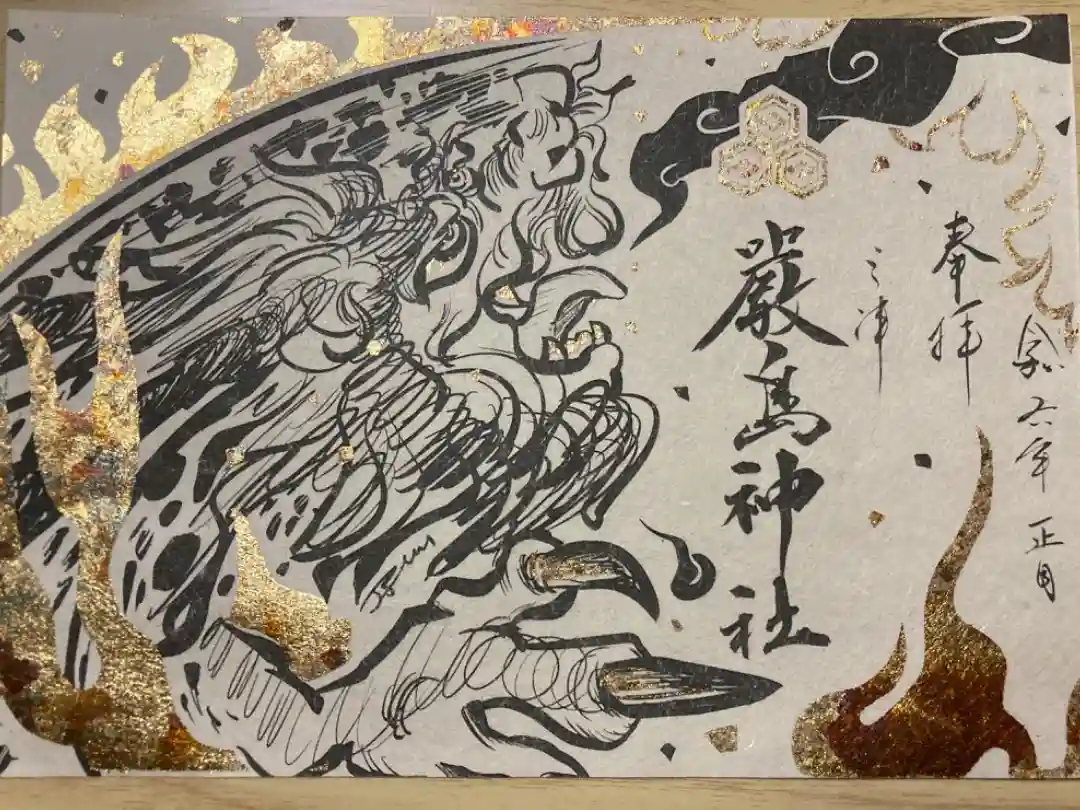 令和六年 正月
奉拝
三津
嚴島神社